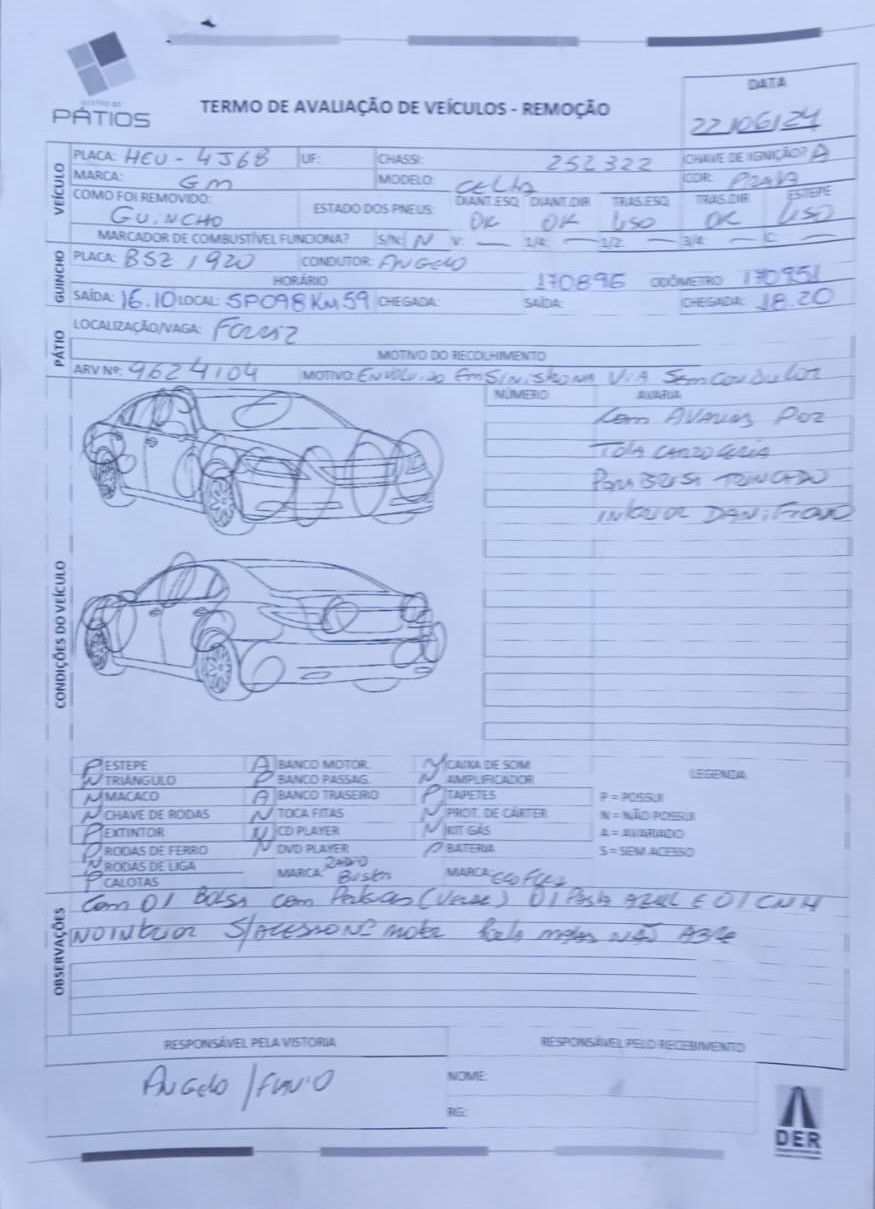 GESTÃO DE
PÁTIOS
TERMO DE AVALIAÇÃO DE VEÍCULOS - REMOÇÃO
DATA
22/06/24
VEÍCULO
PLACA: HEU - 4J68 UF: CHASSI: 252322 CHAVE DE IGNIÇÃO? A
MARCA: GM MODELO: CELTA COR: PRATA
COMO FOI REMOVIDO: GUINCHO ESTADO DOS PNEUS: DIANT.ESQ OK DIANT.DIR OK TRAS.ESQ USO TRAS.DIR OK ESTEPE USO
MARCADOR DE COMBUSTÍVEL FUNCIONA? S/N: N V: — 1/4: — 1/2: — 3/4: — C: —
GUINCHO
PLACA: BSZ 1920 CONDUTOR: ANGELO
HORÁRIO 170896 ODÔMETRO 170951
SAÍDA: 16.10 LOCAL: SP098 KM 59 CHEGADA: SAÍDA: CHEGADA: 18.20
PÁTIO
LOCALIZAÇÃO/VAGA:
MOTIVO DO RECOLHIMENTO
ARV Nº: 9624104 MOTIVO: ENVOLVIDO EM SINISTRO NA VIA SEM CONDUTOR
CONDIÇÕES DO VEÍCULO
NÚMERO AVARIA
Com AVARIAS POR
TODA CARROCERIA
PARABRISA TRINCADO
INTERIOR DANIFICADO
P ESTEPE A BANCO MOTOR. N CAIXA DE SOM
N TRIÂNGULO P BANCO PASSAG. N AMPLIFICADOR LEGENDA
N MACACO A BANCO TRASEIRO P TAPETES P = POSSUI
N CHAVE DE RODAS N TOCA FITAS N PROT. DE CÁRTER N = NÃO POSSUI
P EXTINTOR N CD PLAYER N KIT GÁS A = AVARIADO
P RODAS DE FERRO N DVD PLAYER P BATERIA S = SEM ACESSO
N RODAS DE LIGA MARCA: RADIO MARCA:
P CALOTAS
OBSERVAÇÕES
Com 01 BOLSA com (Verde) 01 PASTA AZUL E 01 CNH
NO INTERIOR S/ACESSO Nº motor malas NÃO ABRE
RESPONSÁVEL PELA VISTORIA RESPONSÁVEL PELO RECEBIMENTO
ANGELO / FLAVIO
NOME:
RG:
DER